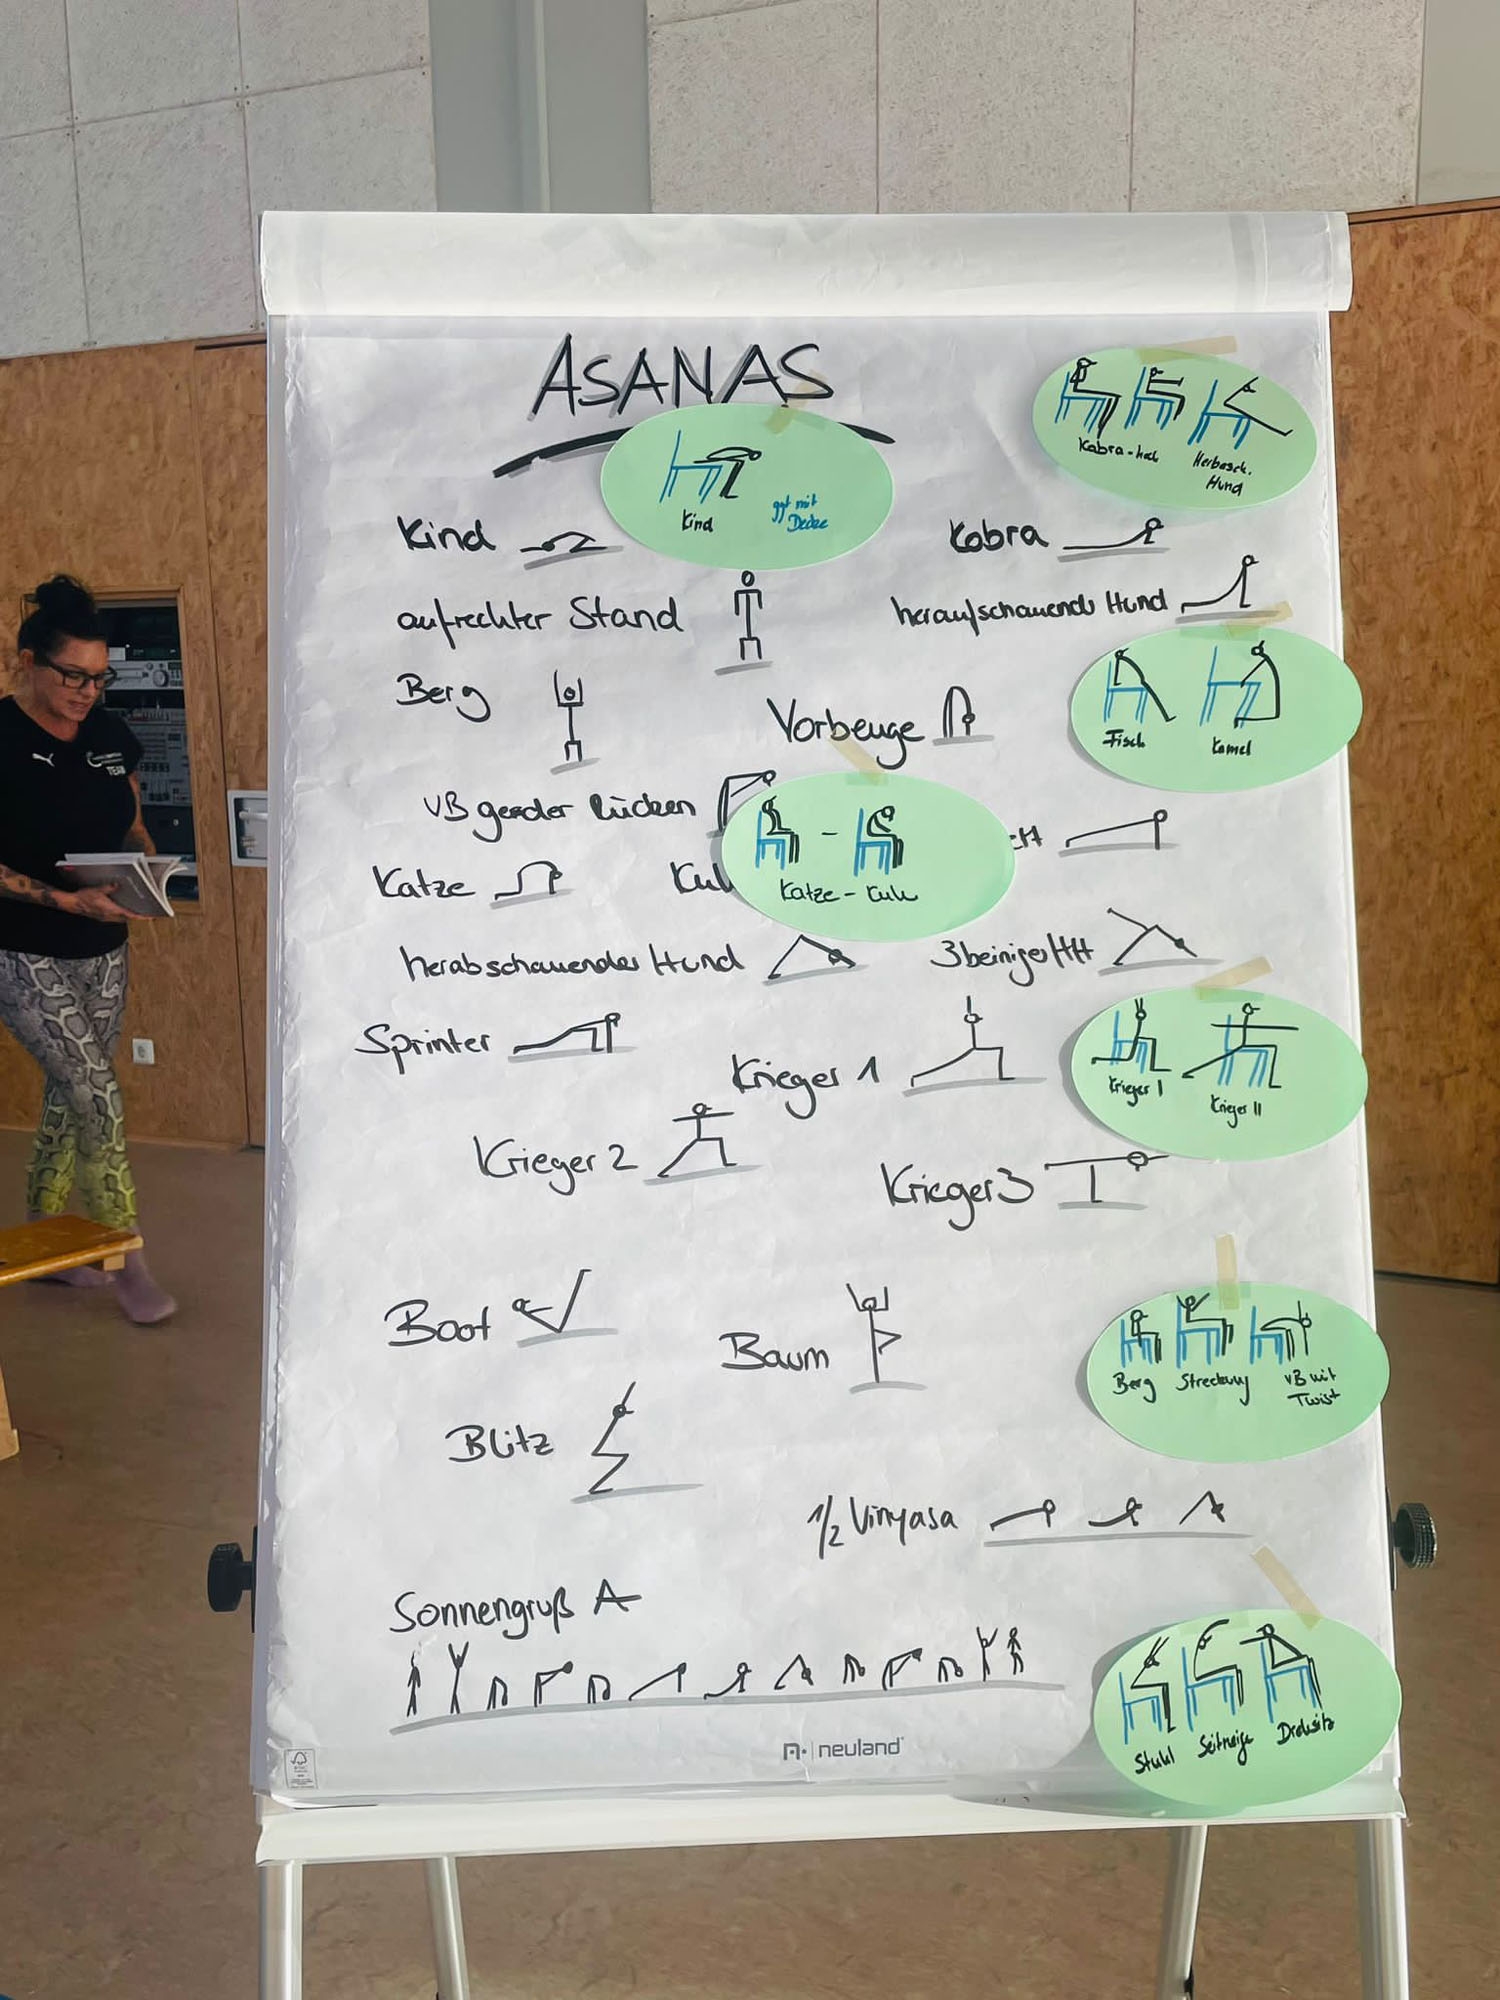 ASANAS
Kobra-hoch
Herabsch.
Hund
Kind
ggf mit
Decke
Kind
Kobra
aufrechter Stand
heraufschauende Hund
Berg
Vorbeuge
Fisch
Kamel
VB gerader Rücken
Katze
Kuh
Katze - Kuh
herabschauender Hund
3beiniger HH
Sprinter
Krieger 1
Krieger I
Krieger II
Krieger 2
Krieger 3
Boot
Baum
Berg
Streckung
VB mit
Twist
Blitz
1/2 Vinyasa
Sonnengruß A
Stuhl
Seitneige
Drehsitz
neuland
TEAM